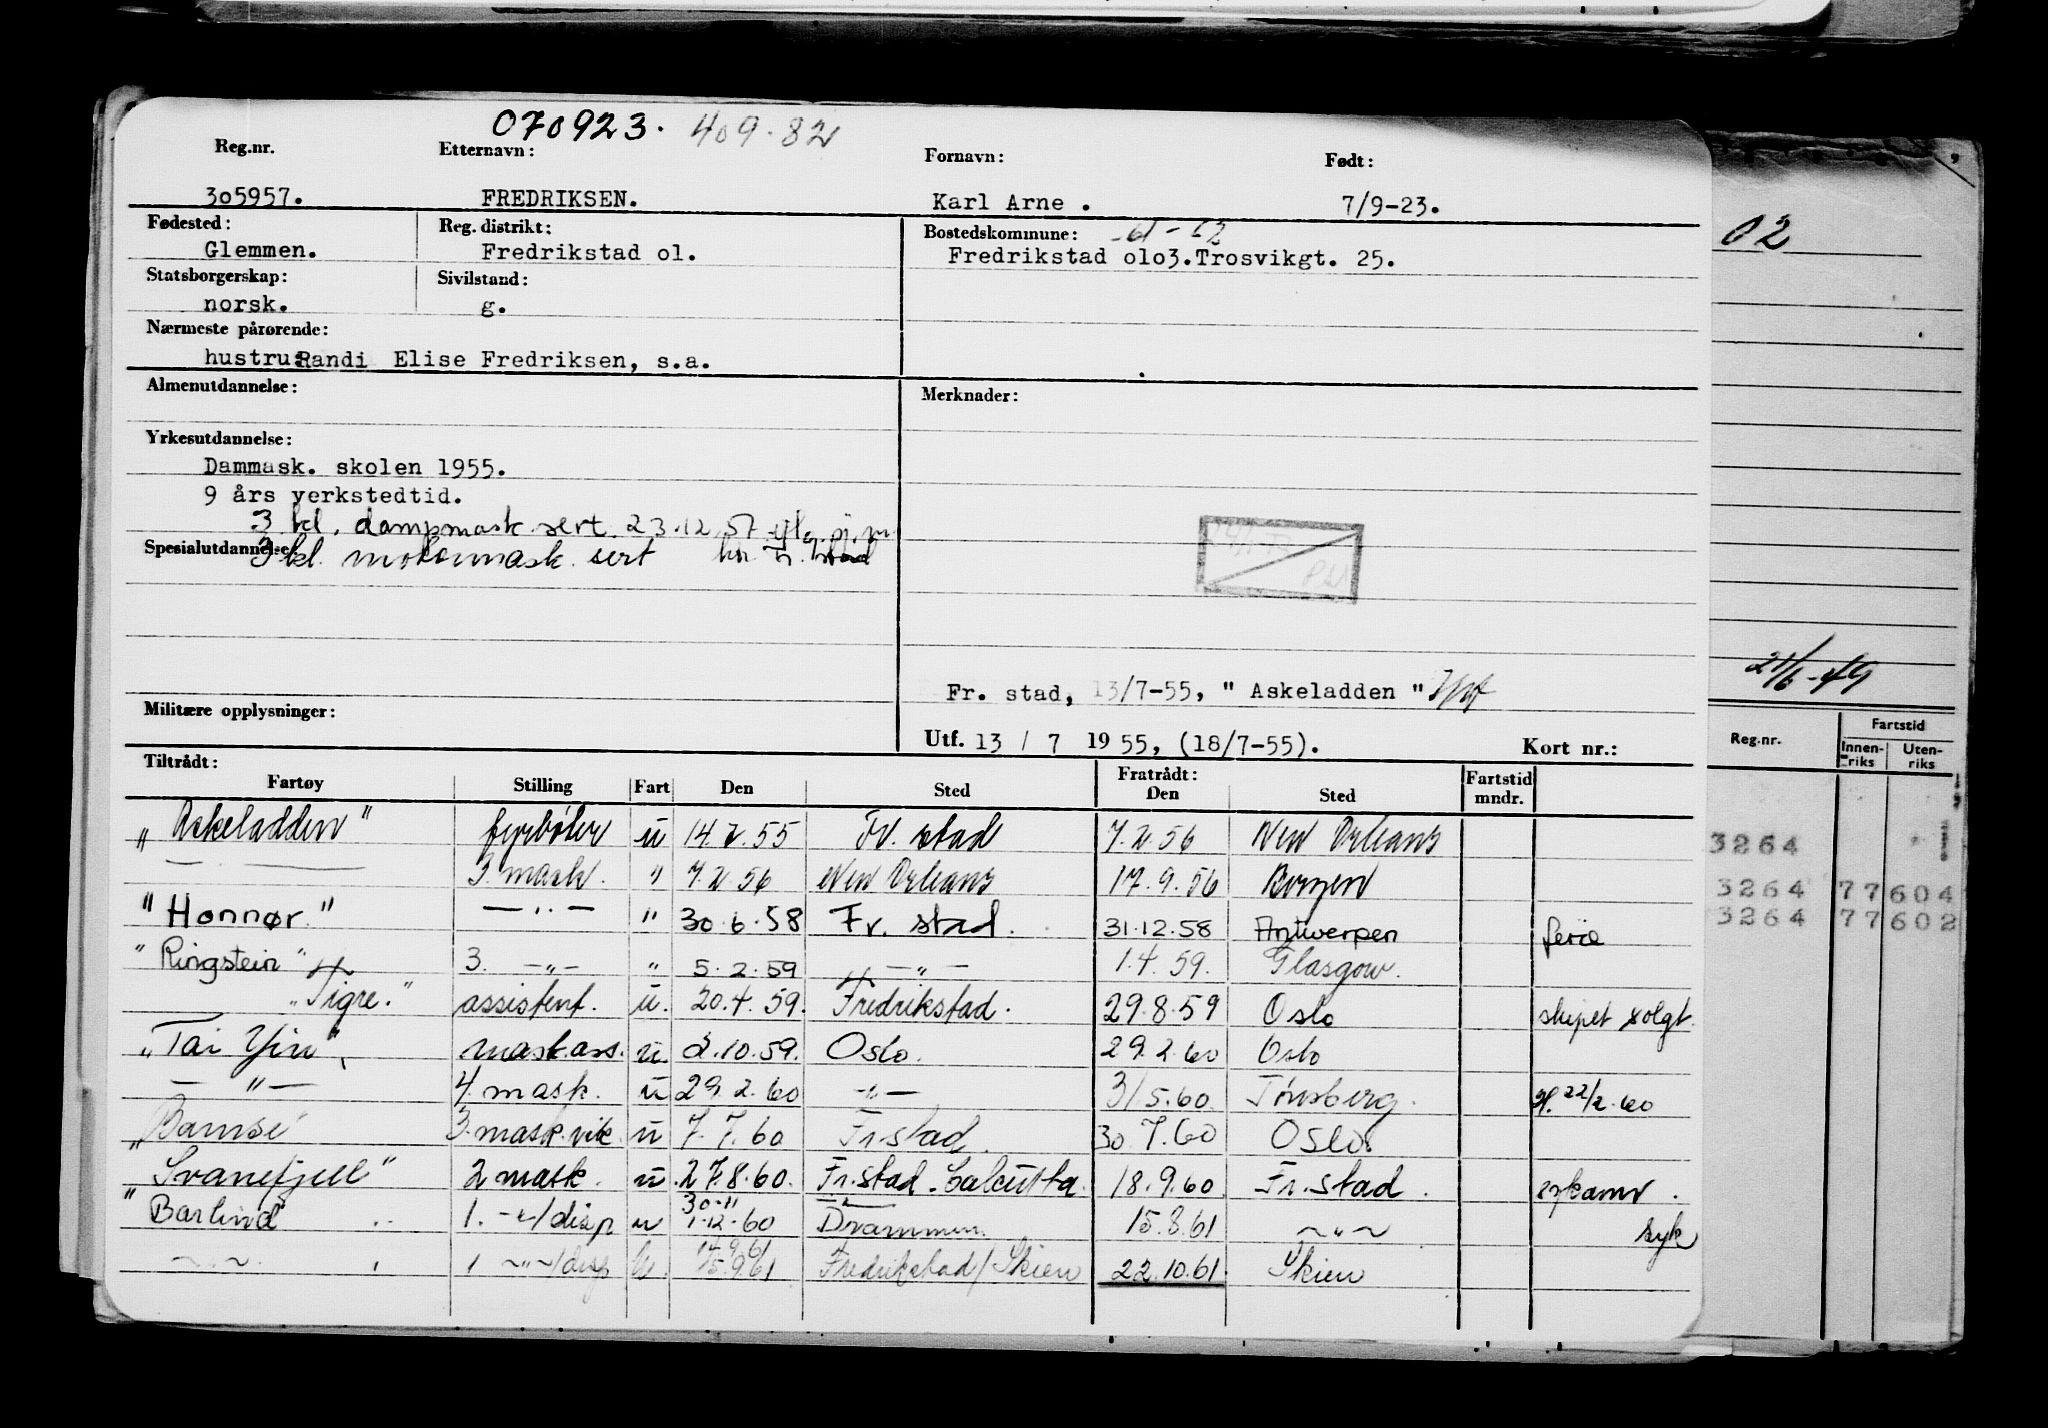 070923. 409.82
Reg.nr. Etternavn: Fornavn: Født:
305957. FREDRIKSEN. Karl Arne . 7/9-23.
Fødested: Reg. distrikt: Bostedskommune:
Glemmen. Fredrikstad ol. Fredrikstad olo3.Trosvikgt. 25.
02
Statsborgerskap: Sivilstand:
norsk. g.
Nærmeste pårørende:
hustru Randi Elise Fredriksen, s.a.
Almenutdannelse: Merknader:
Yrkesutdannelse:
Dammask. skolen 1955.
9 års verkstedtid.
3 kl. dampmask sert. 23.12.57
Spesialutdannelse:
3 kl. motormask. sert
21/6-49
Fr. stad, 13/7-55, " Askeladden "
Militære opplysninger:
Utf. 13 / 7 1955, (18/7-55). Kort nr.:
Reg.nr. Fartstid
Innen-riks Uten-riks
Tiltrådt: Fratrådt:
Fartøy Stilling Fart Den Sted Den Sted Fartstid mndr.
"Askeladden" fyrbøter u 14.7.55 Fr. stad 7.2.56 New Orleans
3264
— 3. mask. " 7.2.56 New Orleans 17.9.56 Bergen
3264 77 604
"Honnør" — " — " 30.6.58 Fr. stad. 31.12.58 Antwerpen ferie
3264 77 602
"Ringstein" 3. — " — " 5.2.59 — " — 1.4.59. Glasgow.
"Tigre." assistent. u. 20.4.59. Fredrikstad. 29.8.59 Oslo skipet solgt
"Tai Yin" mask.ass. u. 2.10.59. Oslo. 29.2.60 Oslo
— " — 4. mask. u 29.2.60 — " — 3/5.60. Tønsberg. 22/2.60
"Bamse 3. mask. vik. u 7.7.60 Fr.stad. 30.7.60 Oslo.
"Svanefjell" 2 mask. u. 27.8.60. Fr.stad. Calcutta. 18.9.60 Fr.stad.
"Barlind" 1. — " — /disp u 30-11 1.12.60 Drammen. 15.8.61 — " — syk
— " — 1 — " — /disp u. 14.9.61 15.9.61 Fredrikstad/Skien 22.10.61. Skien